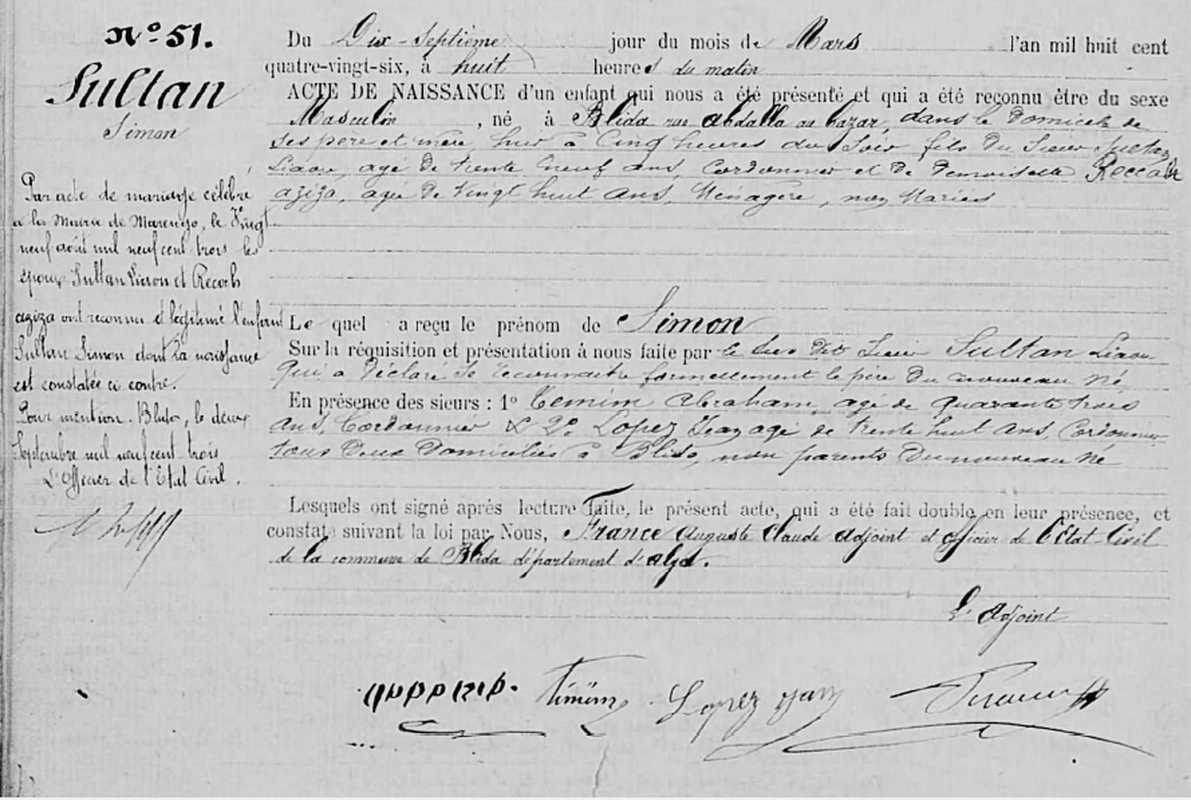 N° 51.
Sultan
Simon
Par acte de mariage célébré
à la Mairie de Marengo, le Vingt
neuf août mil neuf cent trois les
époux Sultan Liaou et Recorb
aziza ont reconnu et légitimé l'enfant
Sultan Simon dont la naissance
est constatée ci contre.
Pour mention. Blida, le deux
Septembre mil neuf cent trois
L'Officier de l'Etat Civil.
Du Dix-Septième jour du mois de Mars l'an mil huit cent
quatre-vingt-six, à huit heures du matin
ACTE DE NAISSANCE d'un enfant qui nous a été présenté et qui a été reconnu être du sexe
Masculin, né à Blida rue abdalla au bazar, dans le domicile de
ses père et mère, hier à Cinq heures du Soir fils du Sieur Sultan
Liaou, agé de trente neuf ans, Cordonnier et de Demoiselle Reccah
aziza, agée de Vingt huit ans, Ménagère, non Mariés
Le quel a reçu le prénom de Simon
Sur la réquisition et présentation à nous faite par le sus dit Sieur Sultan Liaou
qui a Déclaré se reconnaitre formellement le père du nouveau né
En présence des sieurs : 1° Temim Abraham, agé de quarante trois
ans, Cordonnier & 2° Lopez Jean agé de trente huit ans, Cordonnier
tous Deux Domiciliés à Blida, non parents du nouveau né
Lesquels ont signé après lecture faite, le présent acte, qui a été fait double en leur présence, et
constaté suivant la loi par Nous, France Auguste Claude Adjoint et officier de l'Etat-Civil
de la commune de Blida département d'alger.
L'Adjoint
Lopez Jean